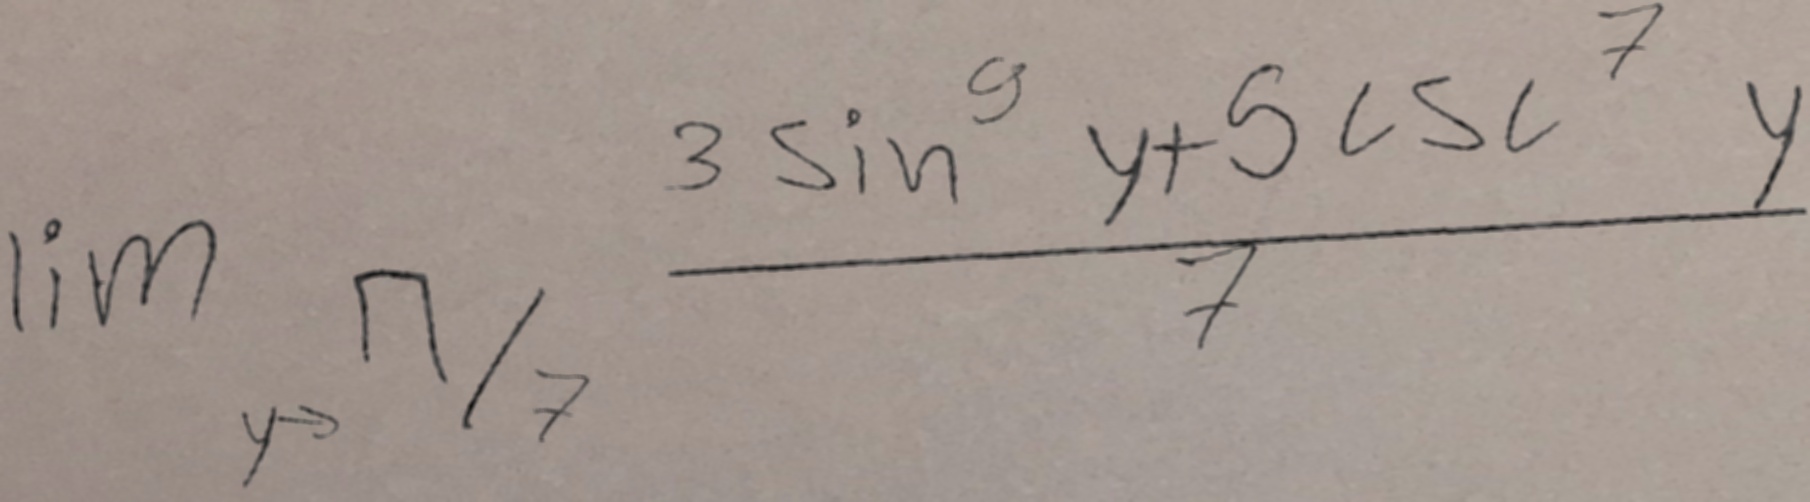 lim y→ π/7 (3 sin^9 y + 5 csc^7 y) / 7